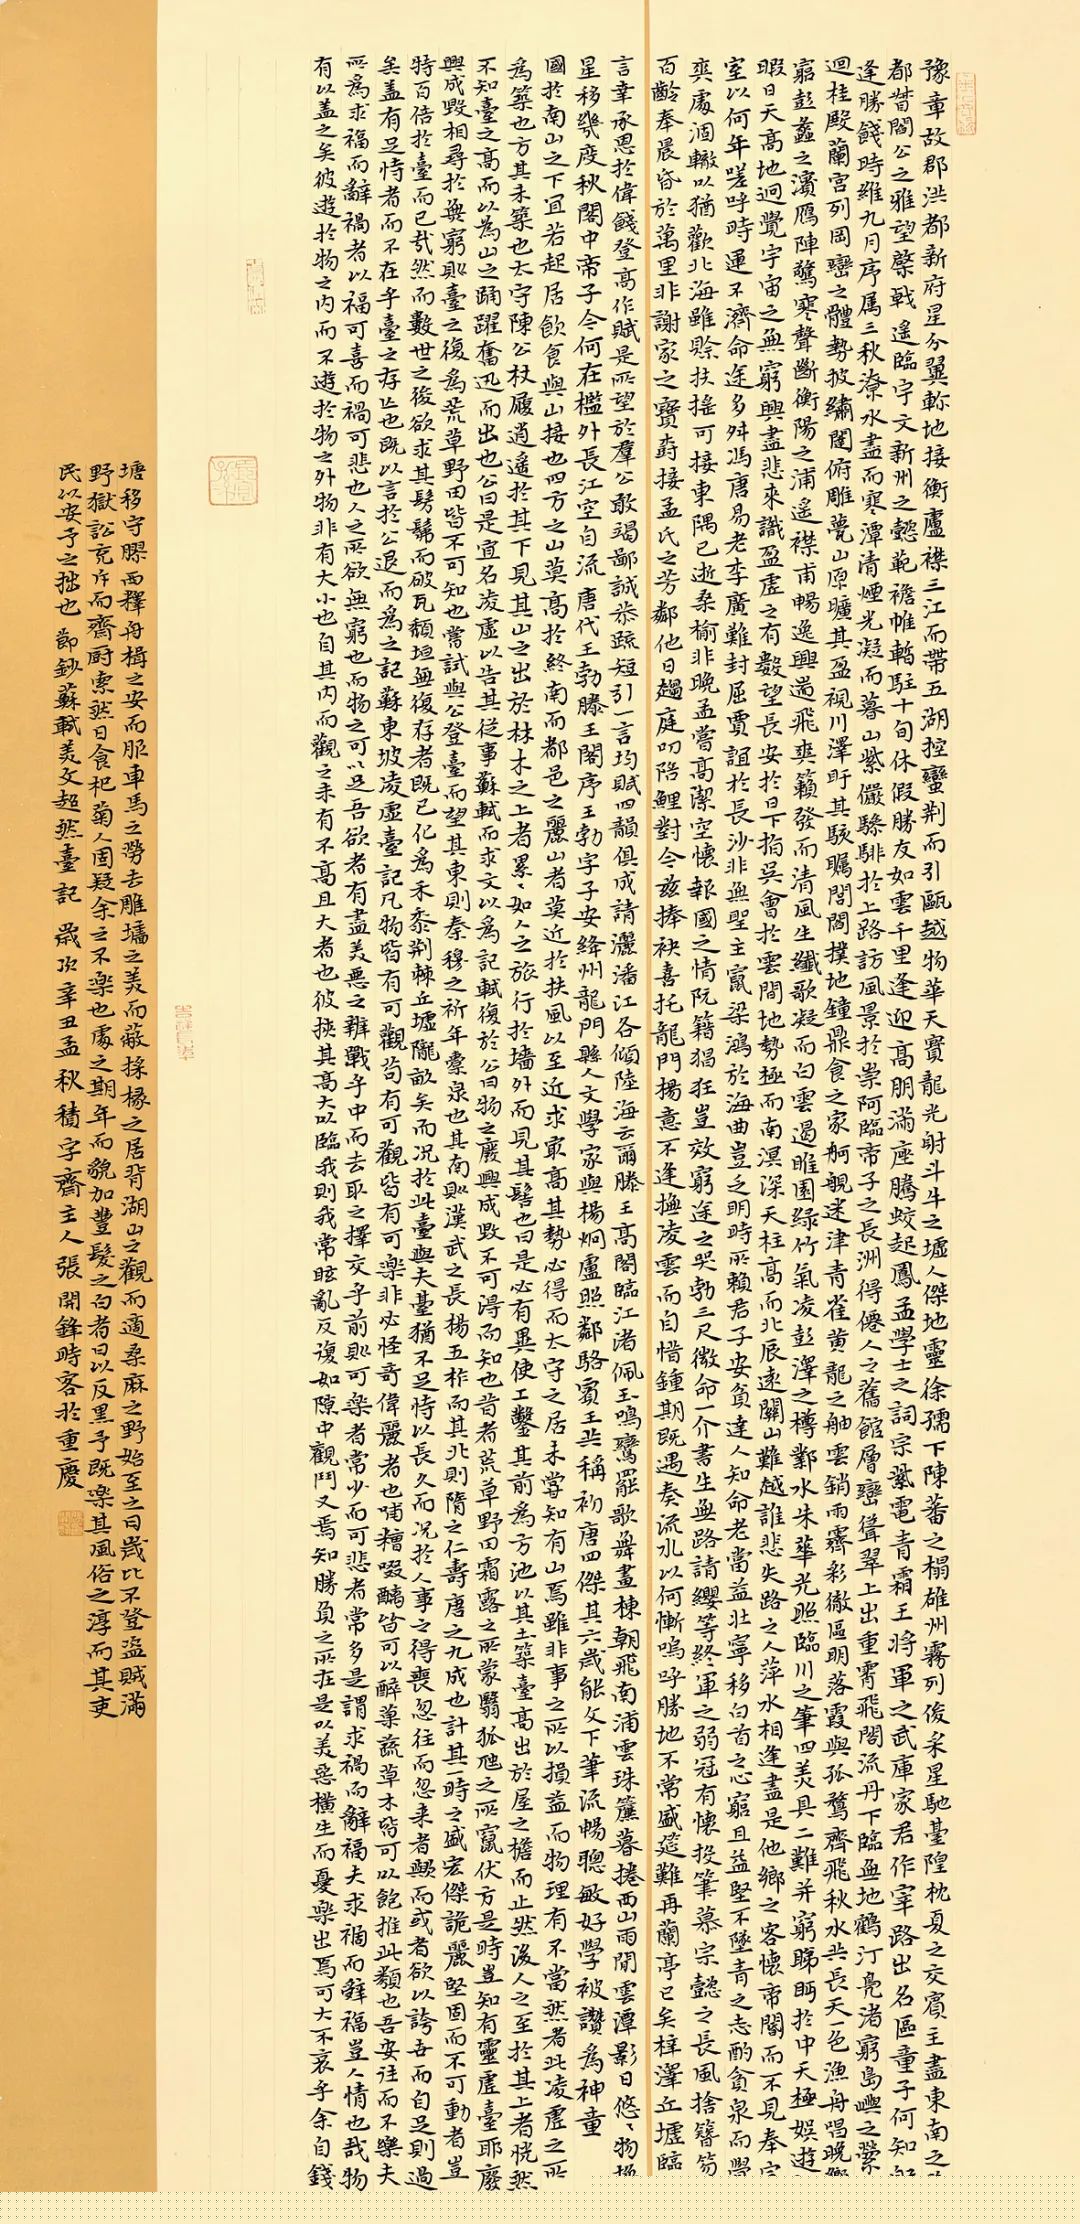 豫章故郡洪都新府星分翼軫地接衡廬襟三江而帶五湖控蠻荆而引甌越物華天寶龍光射斗牛之墟人傑地靈徐孺下陳蕃之榻雄州霧列俊采星馳臺隍枕夏之交賓主盡東南之
都督閻公之雅望棨戟遙臨宇文新州之懿範襜帷暫駐十旬休假勝友如雲千里逢迎高朋滿座騰蛟起鳳孟學士之詞宗紫電青霜王将軍之武庫家君作宰路出名區童子何知躬
逢勝餞時維九月序属三秋潦水盡而寒潭清煙光凝而暮山紫儼驂騑於上路訪風景於崇阿臨帝子之長洲得僊人之舊館層巒聳翠上出重霄飛閣流丹下臨無地鶴汀凫渚窮島嶼之縈
迴桂殿蘭宫列岡巒之體勢披繡闥俯雕甍山原曠其盈視川澤盱其駭矚閭閻撲地鐘鼎食之家舸艦迷津青雀黄龍之舳雲銷雨霽彩徹區明落霞與孤鶩齊飛秋水共長天一色漁舟唱晚響
窮彭蠡之濱鴈陣驚寒聲斷衡陽之浦遥襟甫暢逸興遄飛爽籟發而清風生纖歌凝而白雲遏睢園緑竹氣凌彭澤之樽鄴水朱華光照臨川之筆四美具二難并窮睇眄於中天極娱遊
暇日天高地迥覺宇宙之無窮興盡悲來識盈虚之有數望長安於日下指吳會於雲間地勢極而南溟深天柱高而北辰遠關山難越誰悲失路之人萍水相逢盡是他鄉之客懷帝閽而不見奉宣
室以何年嗟呼時運不濟命途多舛馮唐易老李廣難封屈賈誼於長沙非無聖主竄梁鴻於海曲豈乏明時所賴君子安貧達人知命老當益壯寧移白首之心窮且益堅不墜青之志酌貪泉而覺
爽處涸轍以猶歡北海雖賒扶摇可接東隅已逝桑榆非晚孟嘗高潔空懷報國之情阮籍猖狂豈效窮途之哭勃三尺微命一介書生無路請纓等終軍之弱冠有懷投筆慕宗懿之長風捨簪笏
百齡奉晨昏於萬里非謝家之寶樹接孟氏之芳鄰他日趨庭叨陪鯉對今兹捧袂喜托龍門楊意不逢撫凌雲而自惜鍾期既遇奏流水以何慚嗚呼勝地不常盛筵難再蘭亭已矣梓澤丘墟臨
言幸承恩於偉餞登高作賦是所望於羣公敢竭鄙誠恭疏短引一言均賦四韻俱成請灑潘江各傾陸海云爾滕王高閣臨江渚佩玉鳴鸞罷歌舞畫棟朝飛南浦雲珠簾暮捲西山雨閒雲潭影日悠々物換
星移幾度秋閣中帝子今何在檻外長江空自流唐代王勃滕王閣序王勃字子安絳州龍門縣人文學家與楊炯盧照鄰駱賓王共稱初唐四傑其六歲能文下筆流暢聰敏好學被讚為神童
國於南山之下宜若起居飲食與山接也四方之山莫高於終南而都邑之麗山者莫近於扶風以至近求最高其勢必得而太守之居未嘗知有山焉雖非事之所以損益而物理有不當然者此凌虚之所
為築也方其未築也太守陳公杖履逍遥於其下見其山之出於林木之上者累々如人之旅行於墻外而見其髻也曰是必有異使工鑿其前為方池以其土築臺高出於屋之檐而止然後人之至於其上者恍然
不知臺之高而以為山之踊躍奮迅而出也公曰是宜名凌虚以告其從事蘇軾而求文以為記軾復於公曰物之廢興成毁不可得而知也昔者荒草野田霜露之所蒙翳狐虺之所竄伏方是時豈知有靈虚臺耶廢
興成毁相尋於無窮則臺之復為荒草野田皆不可知也嘗試與公登臺而望其東則秦穆之祈年橐泉也其南則漢武之長楊五柞而其北則隋之仁壽唐之九成也計其一時之盛宏傑詭麗堅固而不可動者豈
特百倍於臺而已哉然而數世之後欲求其髣髴而破瓦頽垣無復存者既已化為禾黍荆棘丘墟隴畝矣而况於此臺與夫臺猶不足恃以長久而况於人事之得喪忽往而忽来者歟而或者欲以誇世而自足則過
矣盖有足恃者而不在乎臺之存亡也既以言於公退而為之記蘇東坡凌虚臺記凡物皆有可觀苟有可觀皆有可樂非必怪奇偉麗者也哺糟啜醨皆可以醉菓蔬草木皆可以飽推此類也吾安往而不樂夫
所為求福而辭禍者以福可喜而禍可悲也人之所欲無窮也而物之可以足吾欲者有盡美惡之辨戰乎中而去取之擇交乎前則可樂者常少而可悲者常多是謂求禍而辭福夫求禍而辭福豈人情也哉物
有以盖之矣彼遊於物之内而不遊於物之外物非有大小也自其内而觀之未有不高且大者也彼挾其高大以臨我則我常眩亂反復如隙中觀鬥又焉知勝負之所在是以美惡横生而憂樂出焉可大不哀乎余自錢
塘移守膠西釋舟楫之安而服車馬之勞去雕墻之美而蔽採椽之居背湖山之觀而適桑麻之野始至之日歲比不登盗賊滿
野獄訟充斥而齋厨索然日食杞菊人固疑余之不樂也處之期年而貌加豐髮之白者日以反黑予既樂其風俗之淳而其吏
民以安予之拙也 節鈔蘇軾美文超然臺記 歲次辛丑孟秋積字齋主人張開鋒時客於重慶